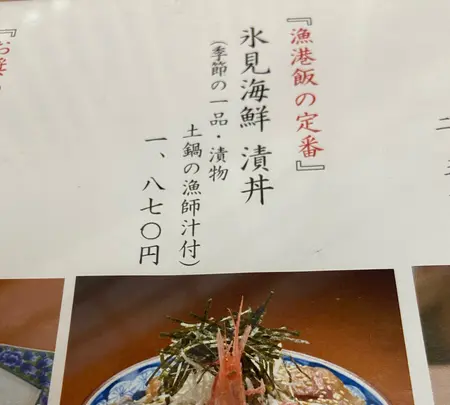 『漁港飯の定番』
氷見海鮮 漬丼
(季節の一品・漬物
土鍋の漁師汁付)
一、八七〇円
『お